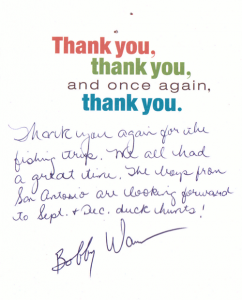 Thank you,
thank you,
and once again,
thank you.
Thank you again for the
fishing trip. We all had
a great time. The boys from
San Antonio are looking forward
to Sept. & Dec. duck hunts!
Bobby